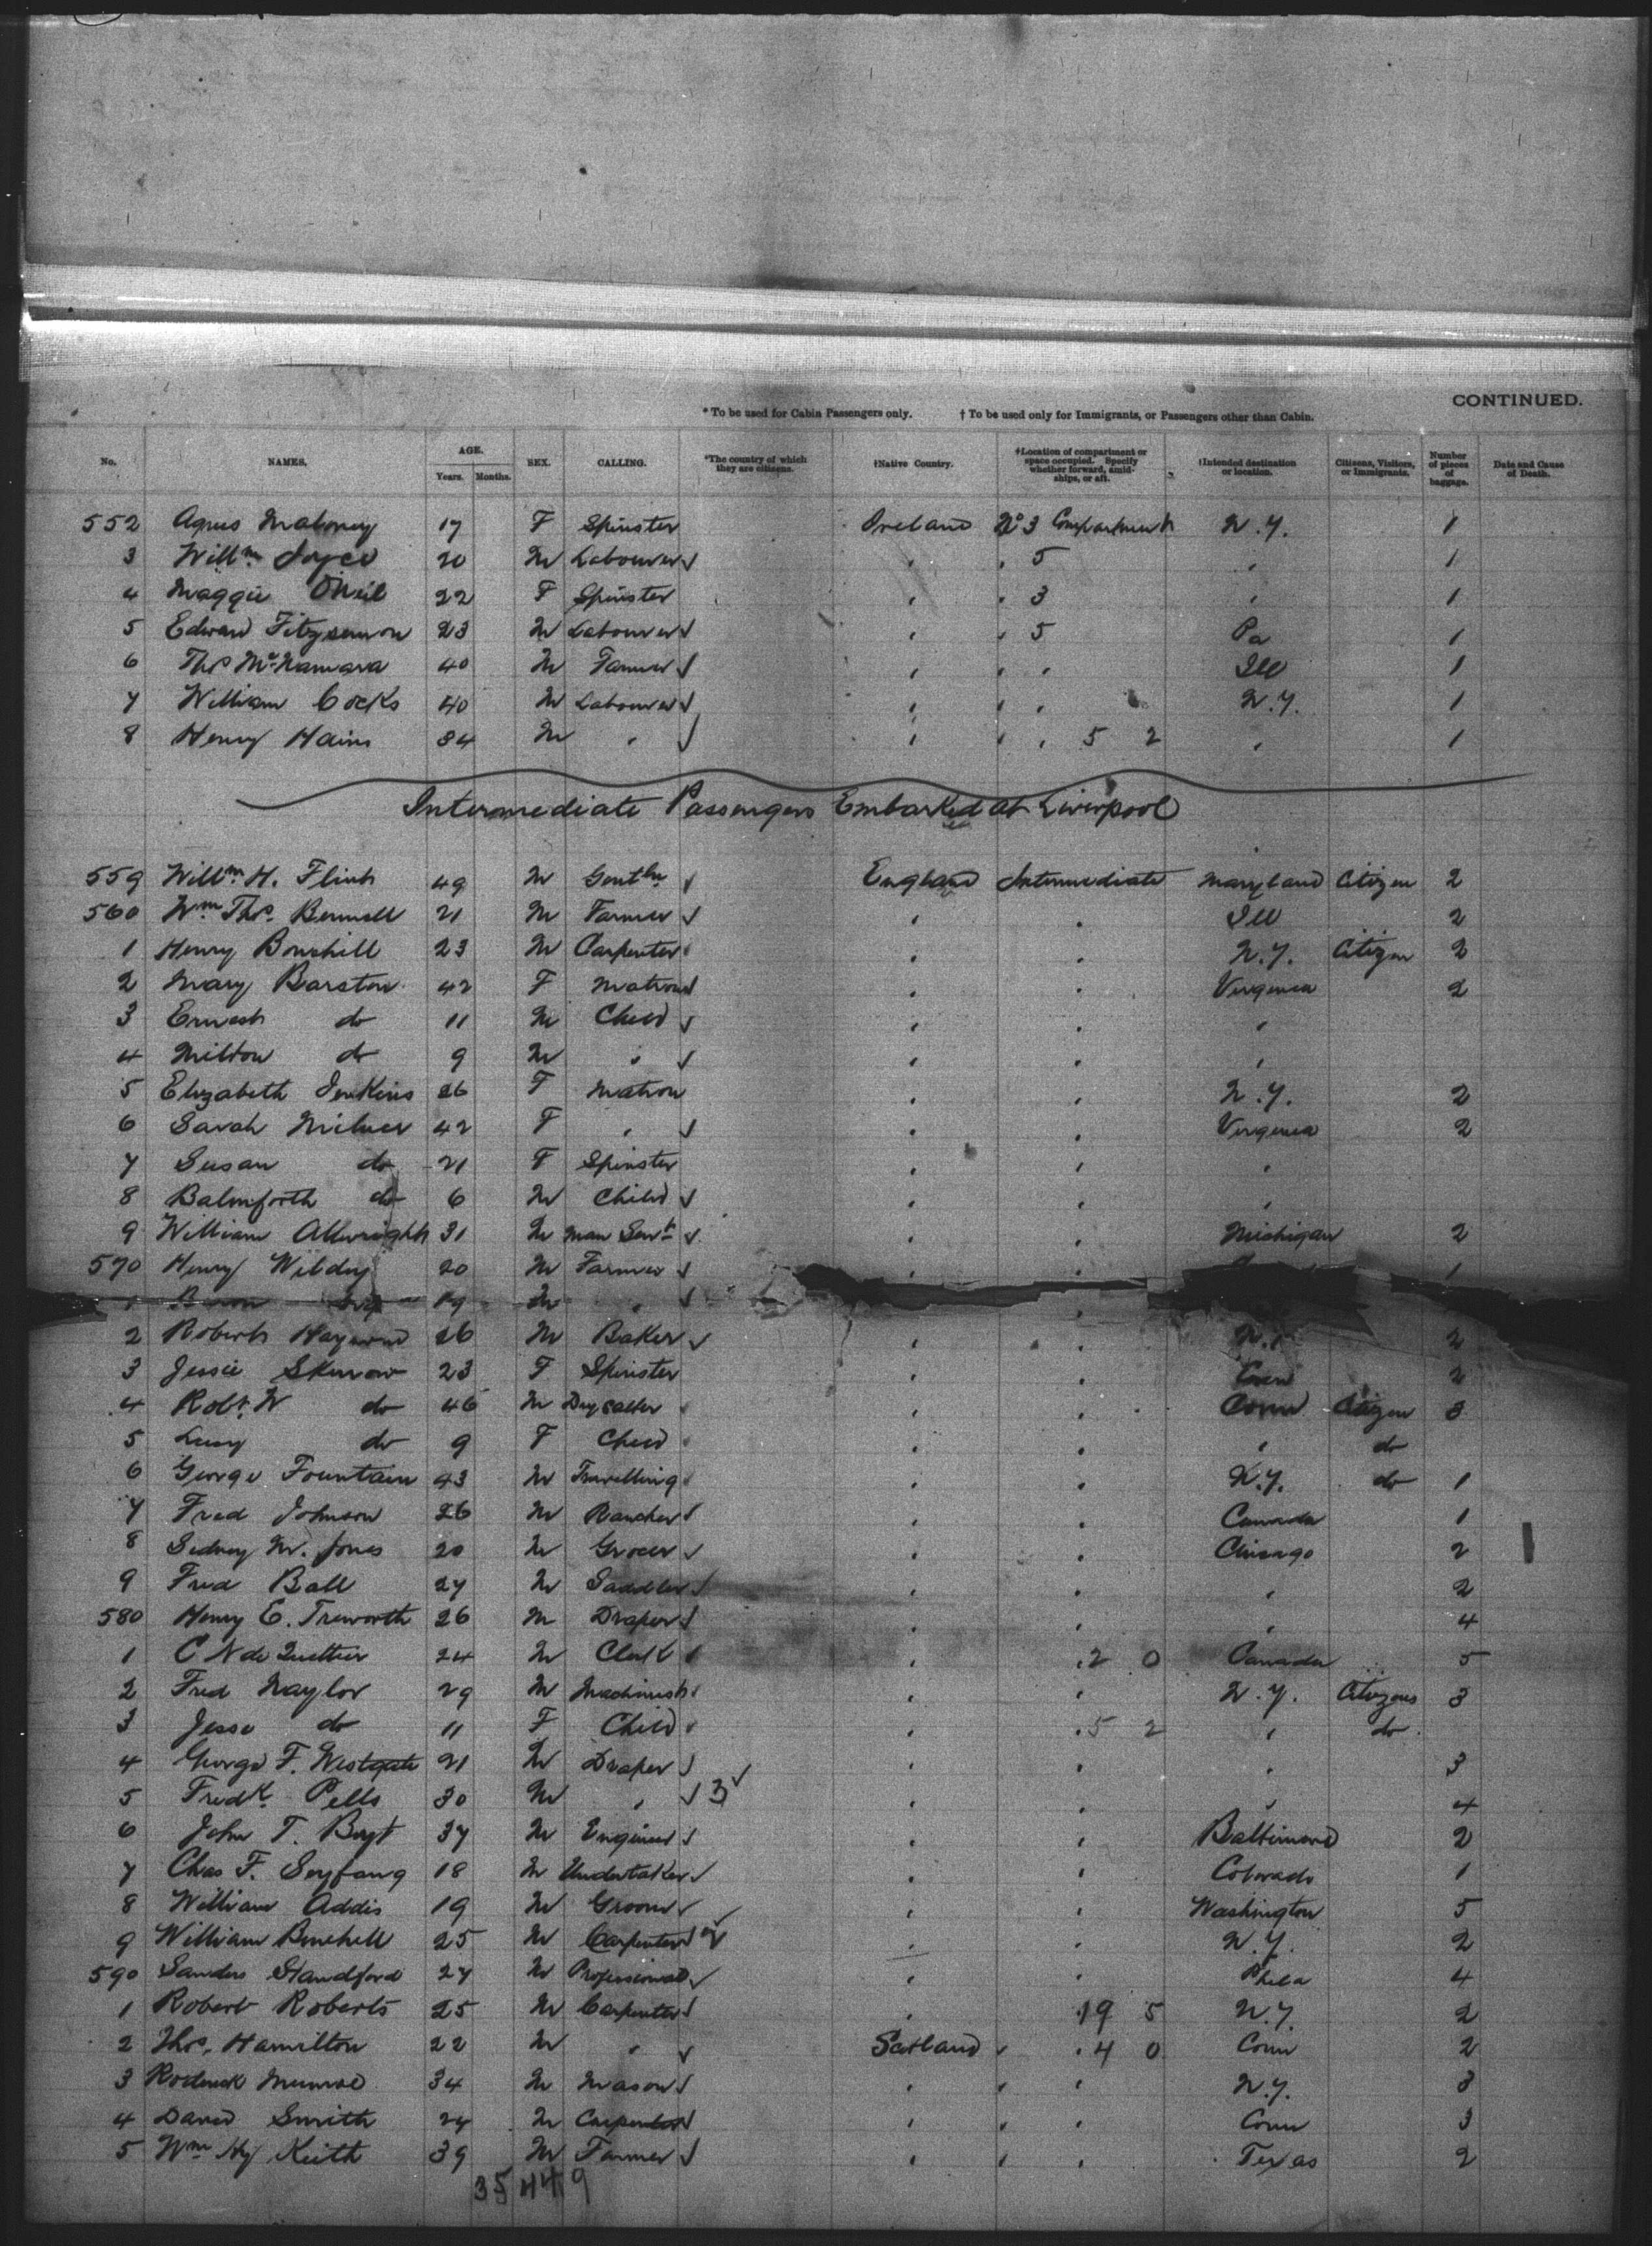 CONTINUED.
* To be used for Cabin Passengers only. † To be used only for Immigrants, or Passengers other than Cabin.
No. NAMES. AGE. Years. Months. SEX. CALLING. *The country of which they are citizens. †Native Country. †Location of compartment or space occupied. Specify whether forward, amidships, or aft. †Intended destination or location. Citizens, Visitors, or Immigrants. Number of pieces of baggage. Date and Cause of Death.
552 Agnes Mahoney 17 F Spinster Ireland No 3 Compartment N.Y. 1
3 Willm Joyce 20 M Labourer √ , , 5 , 1
4 Maggie O'Neil 22 F Spinster , , 3 , 1
5 Edward Fitzsimon 23 M Labourer √ , , 5 Pa 1
6 Thos McNamara 40 M Farmer √ , , , Ill 1
7 William Cocks 40 M Labourer √ , , , N.Y. 1
8 Henry Hains 34 M , √ , , , 5 2 , 1
Intermediate Passengers Embarked at Liverpool
559 Willm H. Flint 49 M Gentln √ England Intermediate Maryland Citizen 2
560 Wm Thos. Bennell 21 M Farmer √ , , Ill 2
1 Henry Bonehill 23 M Carpenter , , N.Y. Citizen 2
2 Mary Barston 42 F Matron √ , , Virginia 2
3 Ernest do 11 M Child √ , , ,
4 Milton do 9 M , √ , , ,
5 Elizabeth Jenkins 26 F Matron , , N.Y. 2
6 Sarah Milner 42 F , √ , , Virginia 2
7 Susan do 21 F Spinster , , ,
8 Balmforth do 6 M Child √ , , ,
9 William Allwright 31 M Man Servt √ , , Michigan 2
570 Henry Wildey 20 M Farmer √ , , 1
1 19 M , √ ,
2 Robert Hayward 26 M Baker √ , , N.Y. 2
3 Jessie Skurrow 23 F Spinster , , Conn 2
4 Robt. W do 46 M Drysalter , , Conn Citizen 3
5 Lucy do 9 F Child , , , do
6 George Fountain 43 M Travelling , , N.Y. do 1
7 Fred Johnson 26 M Rancher √ , , Canada 1
8 Sedney M. Jones 20 M Grocer √ , , Chicago 2
9 Fred Ball 27 M Saddler √ , , , 2
580 Henry E. Treworth 26 M Draper √ , , , 4
1 C N de 24 M Clerk √ , , 2 0 Canada 5
2 Fred Naylor 29 M Machinist , , N.Y. Citizens 3
3 Jesse do 11 F Child , , 5 2 , do
4 George F. Westgate 21 M Draper √ , , , 3
5 Fredk. Pells 30 M , √ 3 √ , , , 4
6 John T. Boyt 37 M Engineer √ , , Baltimore 2
7 Chas F. Seyfang 18 M Undertaker √ , , Colorado 1
8 William Addis 19 M Groom √ , , Washington 5
9 William Bonehill 25 M Carpenter √ 2 √ , , N.Y. 2
590 Sanders Standford 27 M Professional √ , , Phila 4
1 Robert Roberts 25 M Carpenter √ , 19 5 N.Y. 2
2 Thos. Hamilton 22 M , √ Scotland , , 4 0 Conn 2
3 Roderick Munroe 34 M Mason √ , , , N.Y. 3
4 David Smith 24 M Carpenter √ , , , Conn 3
5 Wm Hy Keith 39 M Farmer √ , , , Texas 2
35 44 9